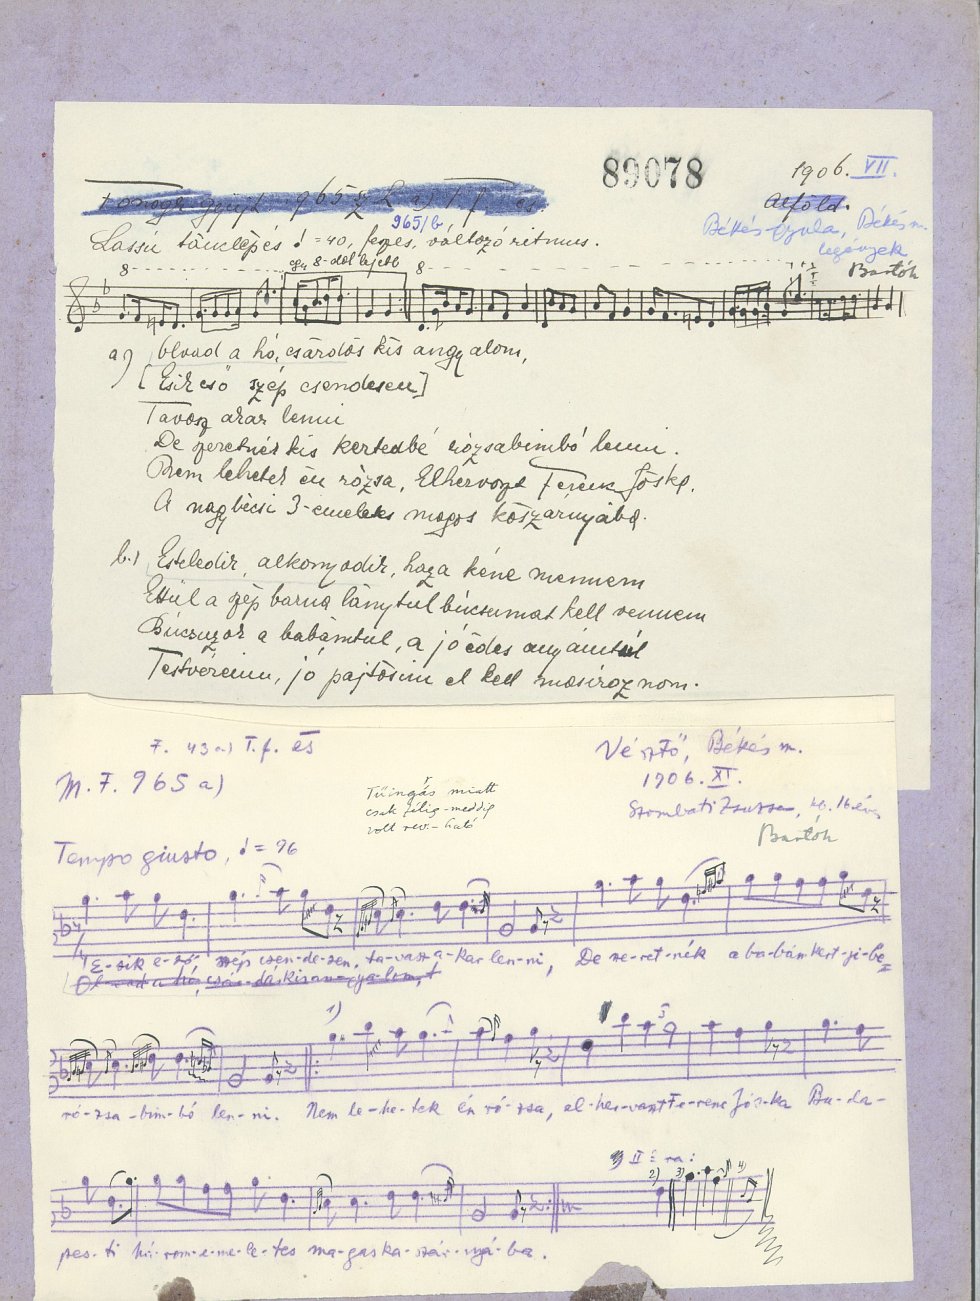 89078
1906. VII.
Alföld.
965/b
Békés-Gyula, Békés m.
legények
Bartók
Lassú tánclépés = 40, feszes, változó ritmus.
egy 8-dal lejebb
8
8
a) Olvad a hó, csárdás kis angyalom,
[Esik eső szép csendesen]
Tavasz akar lenni
De szeretnék kis kertedbe rózsabimbó lenni.
Nem lehetek én rózsa, Elhervaszt Ferenc Jóska.
A nagybécsi 3-emeletes magos kaszárnyába.
b.) Esteledik, alkonyodik, haza kéne mennem
Ettül a szép barna lánytul búcsumat kell vennem
Búcsuzok a babámtul, a jó édes anyámtul
Testvéreim, jó pajtásim el kell masiroznom.
F. 43 a) T.f. és
Vésztő, Békés m.
M. F. 965 a)
1906. XI.
Tűingás miatt
csak félig-meddig
volt rev.-ható
Szombati Zsuzsa, kb. 16 év
Bartók
Tempo giusto, = 96
E-sik e-ső szép csen-de-sen, ta-vasz a-kar len-ni, De sze-ret-nék a ba-bám kert-ji-be
Ol-vad a hó, csár-dás kis an-gya-lom,
1)
3
ró-zsa-bim-bó len-ni. Nem le-he-tek én ró-zsa, el-her-vaszt Fe-renc Jós-ka Bu-da-
II. ra:
2) 3) 4)
pes-ti há-rom-e-me-le-tes ma-gas ka-szár-nyá-ba.